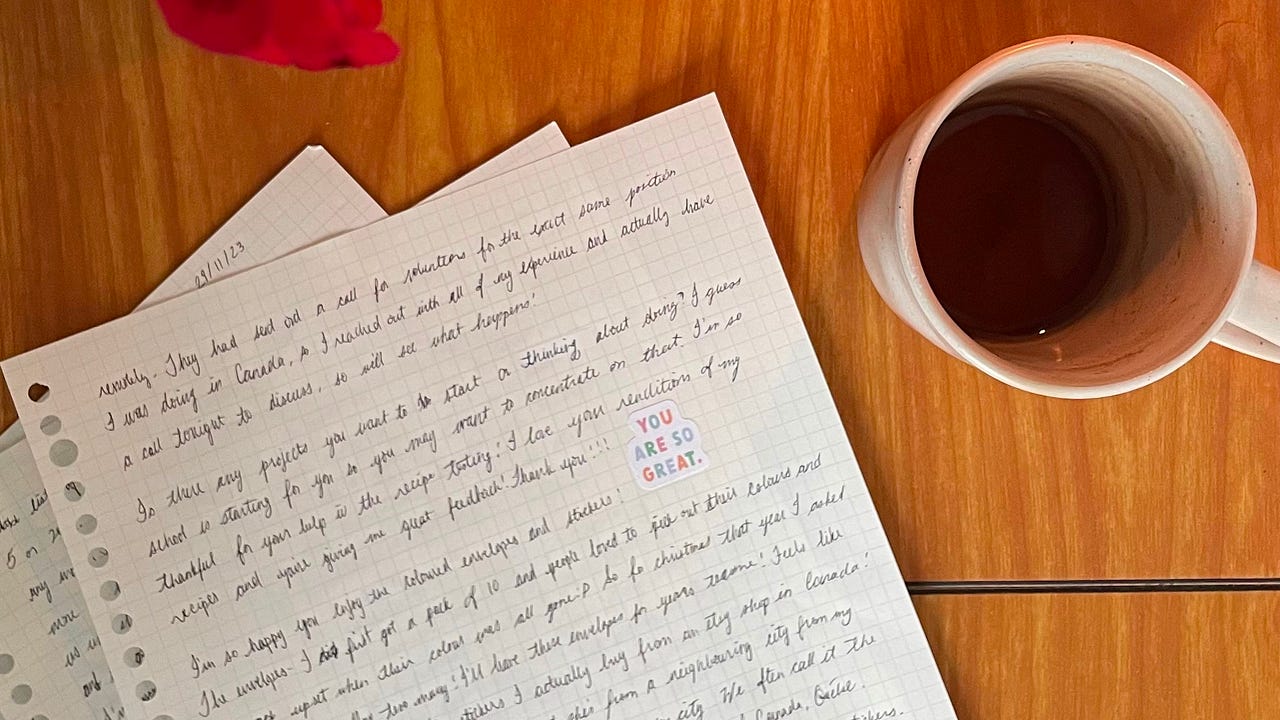 29/11/23
remotely. They had send out a call for volunteers for the exact same position
I was doing in Canada, so I reached out with all of my experience and actually have
a call tonight to discuss, so will see what happens!
Is there any projects you want to start or thinking about doing? I guess
school is starting for you so you may want to concentrate on that. I'm so
thankful for your help in the recipe testing! I love your renditions of my
recipes and you're giving me great feedback! Thank you!!!
YOU
ARE SO
GREAT.
I'm so happy you enjoy the coloured envelopes and stickers!
The envelopes - I first got a pack of 10 and people loved to pick out their colours and
upset when their colour was all gone :P So for christmas that year I asked
too many! I'll have these envelopes for years to come! Feels like
stickers I actually buy from an etsy shop in Canada!
she's from a neighbouring city from my
city. We often call it the
Canada, Québec.
stickers.
5 or
any
more
us
and
I'm